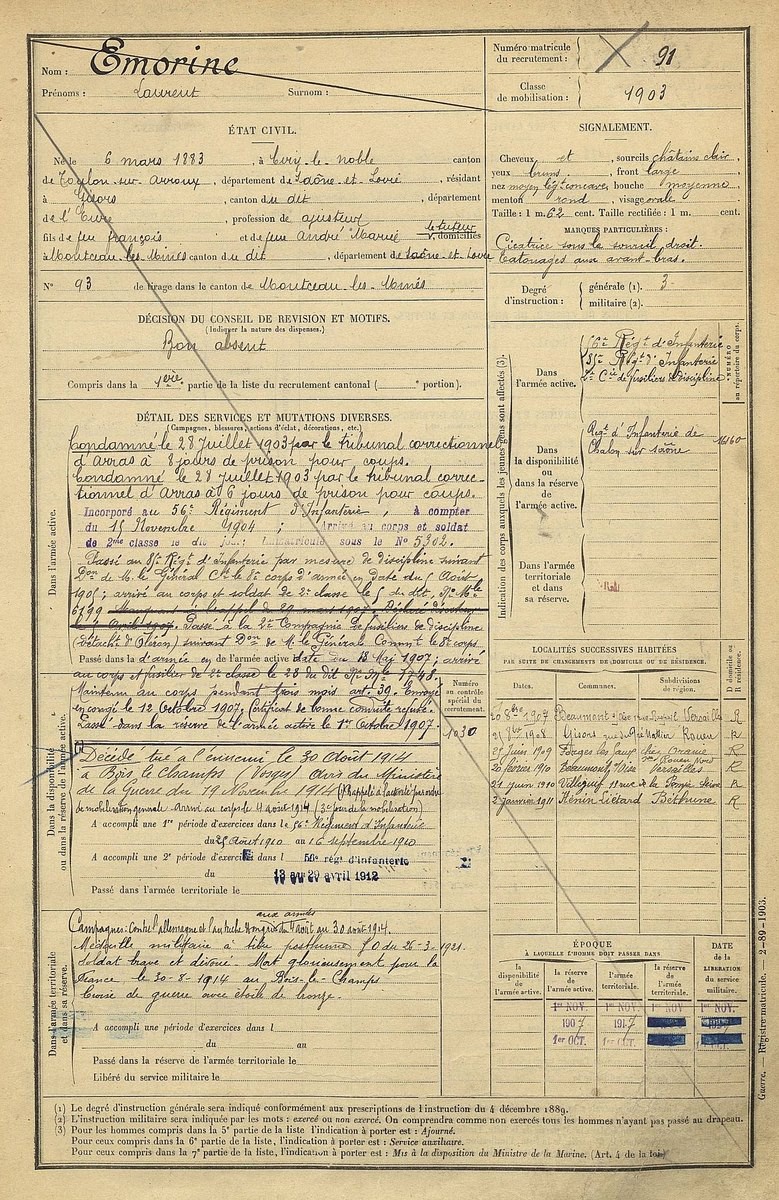 Nom : Emorine
Prénoms : Laurent Surnom :
Numéro matricule du recrutement : 91
Classe de mobilisation : 1903
ÉTAT CIVIL.
Né le 6 mars 1883, à Civry-le-noble canton
de Toulon-sur-Arroux, département de Saône-et-Loire, résidant
à Gisors, canton du dit, département
de l'Eure, profession de ajusteur
fils de feu françois et de feue André Marie le tuteur domiciliés
à Montceau-les-Mines canton du dit, département de Saône-et-Loire
N° 93 de tirage dans le canton de Montceau-les-Mines
SIGNALEMENT.
Cheveux et, sourcils châtains clair,
yeux bruns, front large
nez moyen légt concave, bouche moyenne
menton rond, visage ovale
Taille : 1 m. 62 cent. Taille rectifiée : 1 m. cent.
MARQUES PARTICULIÈRES :
Cicatrice sous le sourcil droit.
Tatouages aux avant-bras.
Degré d'instruction : générale (1). 3
militaire (2).
DÉCISION DU CONSEIL DE REVISION ET MOTIFS.
(Indiquer la nature des dispenses.)
Bon absent
Compris dans la 1ère partie de la liste du recrutement cantonal ( portion).
DÉTAIL DES SERVICES ET MUTATIONS DIVERSES.
(Campagnes, blessures, actions d'éclat, décorations, etc.)
Dans l'armée active.
Condamné le 28 Juillet 1903 par le tribunal correctionnel
d'Arras à 8 jours de prison pour coups.
Condamné le 28 Juillet 1903 par le tribunal correc-
tionnel d'Arras à 6 jours de prison pour coups.
Incorporé au 56e Régiment d'Infanterie, à compter
du 15 Novembre 1904 ; Arrivé au corps et soldat
de 2me classe le dit jour; Immatriculé sous le N° 5302.
Passé au 85e Régt d'Infanterie par mesure de discipline suivant
Don de M. le Général Ct le 8e corps d'armée en date du 5 Août
1905 ; arrivé au corps et soldat de 2e classe le 5 du dit, No Mle
6199 Manquant à l'appel du 29 mars 1907. Déclaré déserteur
Avril 1907. Passé à la 2e Compagnie de fusiliers de discipline
(détacht d'Oléron) suivant Don de M. le Général Commt le 8e corps
Passé dans la d'armée en de l'armée active date du 18 Mai 1907 ; arrivé
au corps et fusilier de 2e classe le 23 du dit No Mle 1748.
Maintenu au corps pendant trois mois art. 39. Envoyé
en congé le 12 Octobre 1907. Certificat de bonne conduite refusé.
Passé dans la réserve de l'armée active le 1er Octobre 1907.
Numéro au contrôle spécial du recrutement.
1030
Dans la disponibilité ou dans la réserve de l'armée active.
Décédé tué à l'ennemi le 30 Août 1914
à Bois le Champs (Vosges) avis du Ministère
de la Guerre du 19 Novembre 1914 (Rappelé à l'activité par ordre
de mobilisation générale. Arrivé au corps le 4 août 1914 (3e jour de la mobilisation)
A accompli une 1re période d'exercices dans le 56e Régiment d'Infanterie
du 25 Août 1910 au 16 septembre 1910
A accompli une 2e période d'exercices dans l 56e régt d'infanterie
du 13 au 29 avril 1912
Passé dans l'armée territoriale le
Dans l'armée territoriale et dans sa réserve.
Campagnes : Contre l'allemagne et l'autriche Hongrie aux armées du 4 août au 30 août 1914.
Médaille militaire à titre posthume JO du 26-3-1921.
Soldat brave et dévoué. Mort glorieusement pour la
France le 30-8-1914 au Bois-le-Champs
Croix de guerre avec étoile de bronze.
A accompli une période d'exercices dans l
du au
Passé dans la réserve de l'armée territoriale le
Libéré du service militaire le
Indication des corps auxquels les jeunes gens sont affectés (3).
NUMÉRO au répertoire du corps.
Dans l'armée active.
56e Régt d'Infanterie
85e Régt d'Infanterie
2e Cie de fusiliers de discipline
Dans la disponibilité ou dans la réserve de l'armée active.
Régt d'Infanterie de
Chalon sur Saône
Dans l'armée territoriale et dans sa réserve.
LOCALITÉS SUCCESSIVES HABITÉES
PAR SUITE DE CHANGEMENTS DE DOMICILE OU DE RÉSIDENCE.
Dates. Communes. Subdivisions de région. D domicile ou R résidence.
20 8bre 1907 Beaumont s/Oise Versailles R
21 9bre 1908 Gisors Rouen R
25 Juin 1909 Forges les Eaux Rouen Nord R
20 février 1910 Beaumont s/Oise Versailles R
21 juin 1910 Villejuif Seine R
2 janvier 1911 Hénin Liétard Béthune R
ÉPOQUE
À LAQUELLE L'HOMME DOIT PASSER DANS
DATE de la LIBÉRATION du service militaire.
la disponibilité de l'armée active. la réserve de l'armée active. l'armée territoriale. la réserve de l'armée territoriale.
1er NOV. 1er NOV. 1er NOV. 1er NOV.
1907 1917
1er OCT. 1er OCT.
(1) Le degré d'instruction générale sera indiqué conformément aux prescriptions de l'instruction du 4 décembre 1889.
(2) L'instruction militaire sera indiquée par les mots : exercé ou non exercé. On comprendra comme non exercés tous les hommes n'ayant pas passé au drapeau.
(3) Pour les hommes compris dans la 5e partie de la liste l'indication à porter est : Ajourné.
Pour ceux compris dans la 6e partie de la liste, l'indication à porter est : Service auxiliaire.
Pour ceux compris dans la 7e partie de la liste, l'indication à porter est : Mis à la disposition du Ministre de la Marine. (Art. 4 de la loi)
Guerre. — Registre matricule. — 2-89-1903.